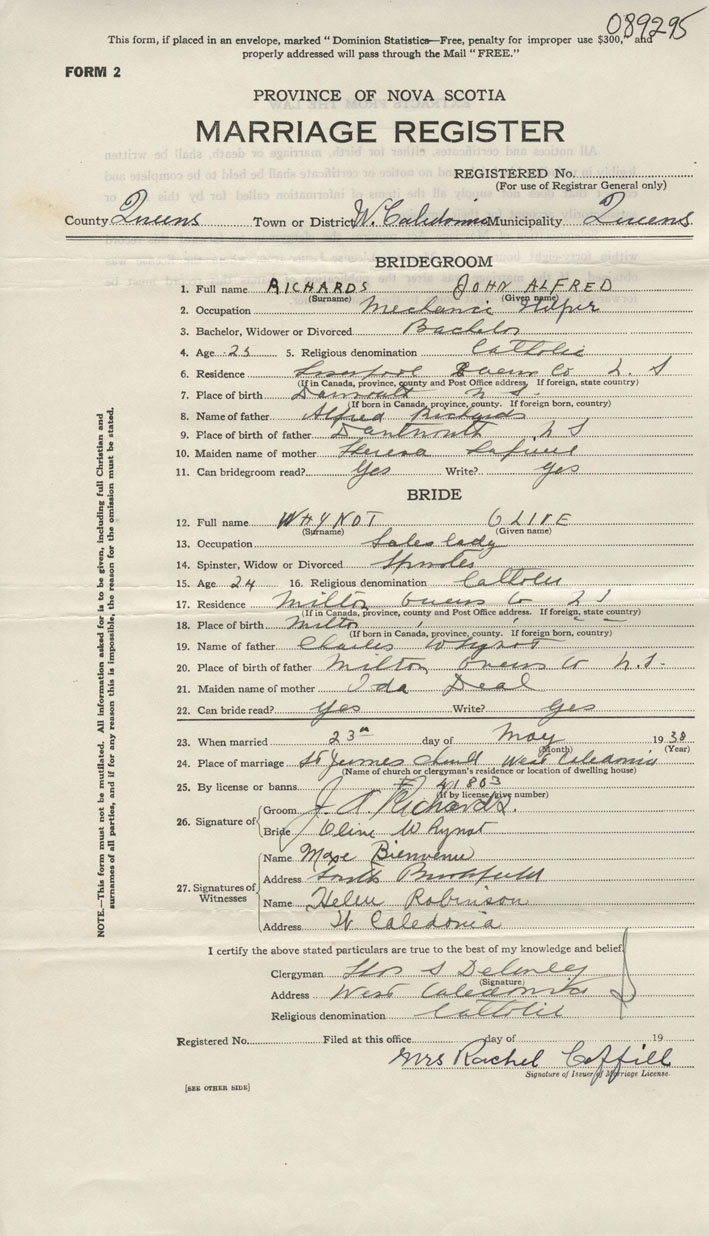 089295
This form, if placed in an envelope, marked "Dominion Statistics—Free, penalty for improper use $300," and
properly addressed will pass through the Mail "FREE."
FORM 2
PROVINCE OF NOVA SCOTIA
MARRIAGE REGISTER
REGISTERED No.
(For use of Registrar General only)
County Queens Town or District W. Caledonia Municipality Queens
BRIDEGROOM
1. Full name RICHARDS JOHN ALFRED
(Surname) (Given name)
2. Occupation Mechanic Helper
3. Bachelor, Widower or Divorced Bachelor
4. Age 25 5. Religious denomination Catholic
6. Residence Liverpool Queens Co N. S
(If in Canada, province, county and Post Office address. If foreign, state country)
7. Place of birth N. S.
(If born in Canada, province, county. If foreign born, country)
8. Name of father Alfred Richards
9. Place of father Dartmouth N S
10. Maiden name of mother Theresa
11. Can bridegroom read? Yes Write? Yes
BRIDE
12. Full name WHYNOT OLIVE
(Surname) (Given name)
13. Occupation Sales lady
14. Spinster, Widow or Divorced Spinster
15. Age 24 16. Religious denomination Catholic
17. Residence Milton Queens Co N S
(If in Canada, province, county and Post Office address. If foreign, state country)
18. Place of birth Milton
(If born in Canada, province, county. If foreign born, country)
19. Name of father Charles Whynot
20. Place of birth of father Milton, Queens Co N.S.
21. Maiden name of mother Ida Deal
22. Can bride read? Yes Write? Yes
23. When married 23rd day of May 1938
(Month) (Year)
24. Place of marriage St Jeromes Church West Caledonia
(Name of church or clergyman's residence or location of dwelling house)
25. By license or banns 41803
(If by license, give number)
26. Signature of
Groom J. A. Richards.
Bride Olive Whynot
27. Signatures of Witnesses
Name Bienvenu
Address South Brookfield
Name Helen Robinson
Address W. Caledonia
I certify the above stated particulars are true to the best of my knowledge and belief.
Clergyman Thos S
(Signature)
Address West Caledonia
Religious denomination Catholic
Registered No. Filed at this office day of 19
Mrs Rachel Coffill
Signature of Issuer of Marriage License.
[SEE OTHER SIDE]
NOTE.—This form must not be mutilated. All information asked for is to be given, including full Christian and
surnames of all parties, and if for any reason this is impossible, the reason for the omission must be stated.